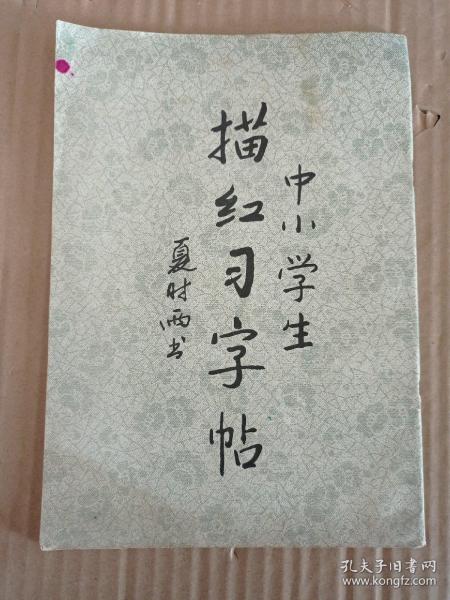 中小学生
描红习字帖
夏时雨书
孔夫子旧书网
www.kongfz.com